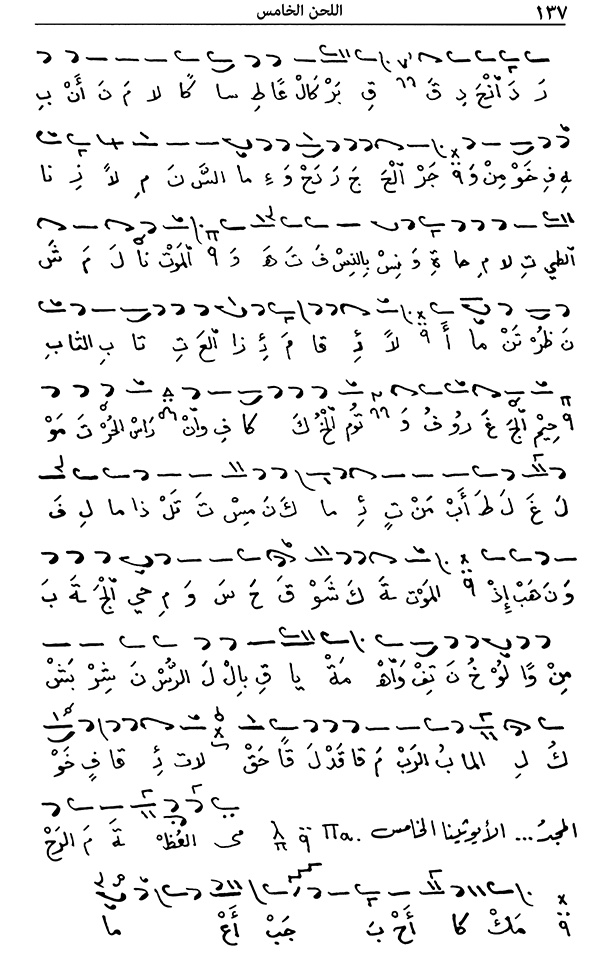 ١٣٧ اللحن الخامس
رَ دَ اْنْحَ دِ قَ قِ بَرْ كَالْ عَاطِ سا كًا لا مَ نَ أَنْ بِـ
ـهِ فِ خَوْ مِنْ وَ جَرْ اَلْحَ جَ رَ نَحْ وَ ءِ ما السَّ نَ مِ لاً زِ نا
الطي تِ لا مِ حا ةِ وَ نِسْ بِالنِسْ فَ تَ هَـ وَ المَوْتْ ناْ لَ مَ شَ
نَ ظَرْ تَنْ ما أَ لاً ئِـ قا مَ ئِـ زا اَلْعَ تِ تا بِ الثابِ
حِيمْ اَلجَ غَ روُ فُ وَ تُومْ اَلْخُ كَ كا فِ وأنْ رَاسْ الحُرْ تَ مَوْ
لَ غَ لَ طَ أَبْ مَنْ تٍ ئِـ ما كَنَ مِسْ تَ تَلْ ذا ما لِ فَ
وَ نَ هَبْ إِذْ المَوْتِـ ـةَ كَ شَوْ قَ حَ سَ وَ مِ حي اَلْجَـ ـةَ بَ
مِنْ وًا لَوْ خُ نَ تِفْ وَاَهْـ مَةْ يا قِ بِالْ لَ الرُسْ نَ شِرْ بَشْ
كُ لِ الما بُ الرَبْ مَ قا قَدْ لَ قًا حَقْ لات ئِـ قا فٍ خَوْ
المجدُ... الأيوثينا الخامس .Πa مى العُظْـ ـةَ مَ الرَحْ
مَكْ كا أَحْ بَ جَبْ أَعْ ما